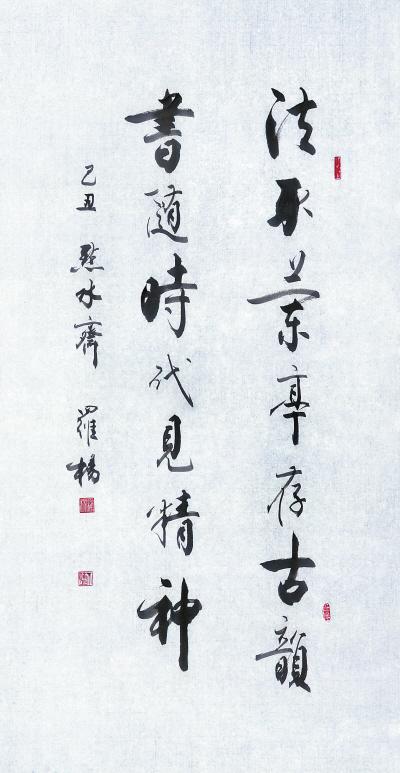 法承蘭亭存古韻
書隨時代見精神
己丑 點水齋 羅楊